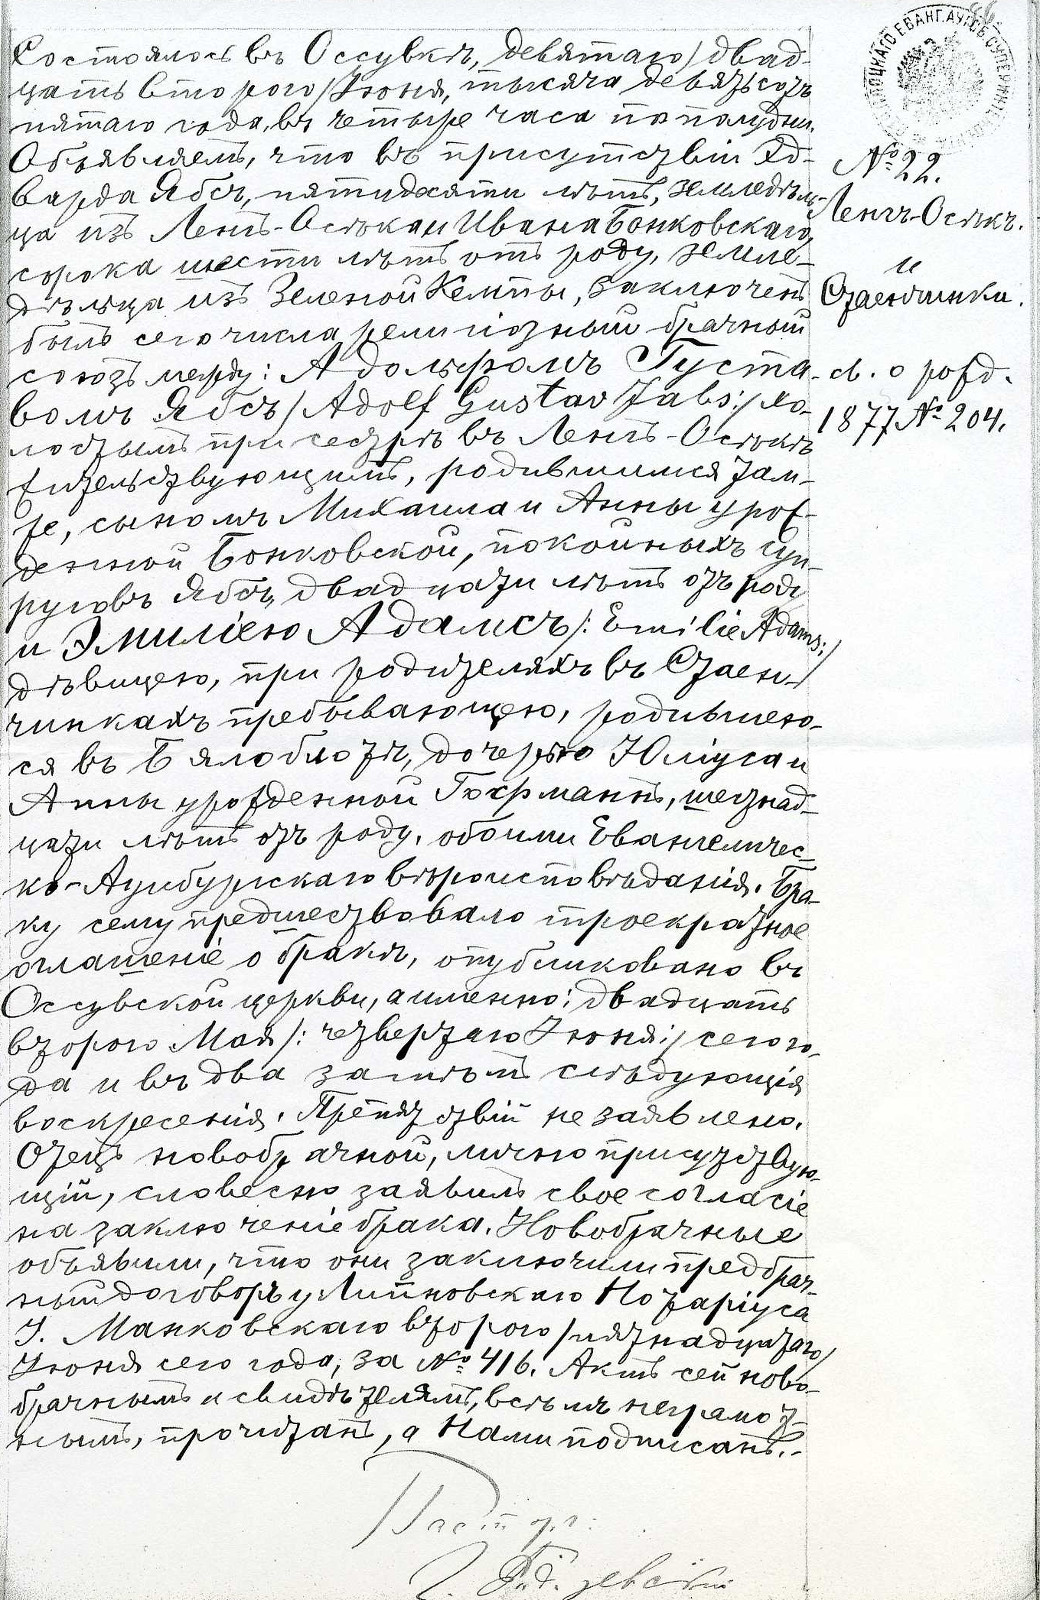 Состоялось въ Оссувкѣ, девятаго/двад-
цать второго/Іюня, тысяча девятьсотъ
пятаго года, въ четыре часа по полудни.
Объявляемъ, что въ присутствіи Эд-
варда Ябсъ, пятидесяти лѣтъ, земледѣль-
ца изъ Ленгъ-Осѣка и Ивана Бонковскаго,
сорока шести лѣтъ отъ роду, земле-
дѣльца изъ Зеленой Кемпы, заключенъ
былъ сего числа религіозный брачный
союзъ между: Адольфомъ Густа-
вомъ Ябсъ/Adolf Gustav Jabs:/хо-
лостымъ при сестрѣ въ Ленгъ-Осѣкѣ
жительствующимъ, родившимся там-
же, сыномъ Михаила и Анны урож-
денной Бонковской, покойныхъ суп-
руговъ Ябсъ, двадцати лѣтъ отъ роду
и Эмиліею Адамсъ/: Emilie Adams:/
дѣвицею, при родителяхъ въ Стаен-
чинкахъ пребывающею, родившею-
ся въ Бялоблотѣ, дочерью Юліуса и
Анны урожденной Гохрманнъ, шестнад-
цати лѣтъ отъ роду, обоими Евангеличес-
ко-Аугсбургскаго вѣроисповѣданія. Бра-
ку сему предшествовало троекратное
оглашеніе о бракѣ, опубликовано въ
Оссувской церкви, а именно: двадцать
второго Мая/: четвертаго Іюня:/сего го-
да и въ два затѣмъ слѣдующія
воскресенія. Препятствій не заявлено.
Отецъ новобрачной, лично присутствую-
щій, словесно заявилъ свое согласіе
на заключеніе брака. Новобрачные
объявили, что они заключили предбрач-
ный договоръ у Липновскаго Нотаріуса
І. Манковскаго второго/пятнадцатаго/
Іюня сего года, за № 416. Актъ сей ново-
брачнымъ и свидѣтелямъ, всѣмъ неграмот-
нымъ, прочитанъ, а Нами подписанъ.-
Пасторъ:
№ 22.
Ленгъ-Осѣкъ.
и
Стаенчинки.
св. о рожд.
1877 № 204.